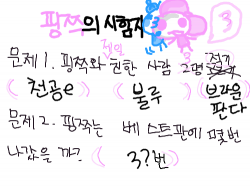 핑쯔의 시험지 3
문제1. 핑쯔와 제일 친한 사람 2명 적기
(천공e) (불루) (브라운판다)
문제2. 핑쯔는 베스트판에 몇번
나갔을까? (3?번)